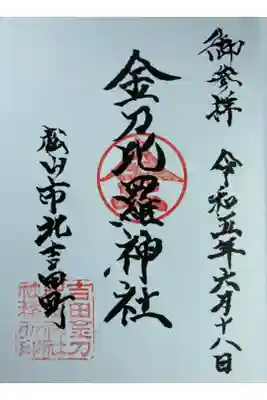 御参拝 令和五年六月十八日
金刀比羅神社
松山市北吉田町
吉田金刀